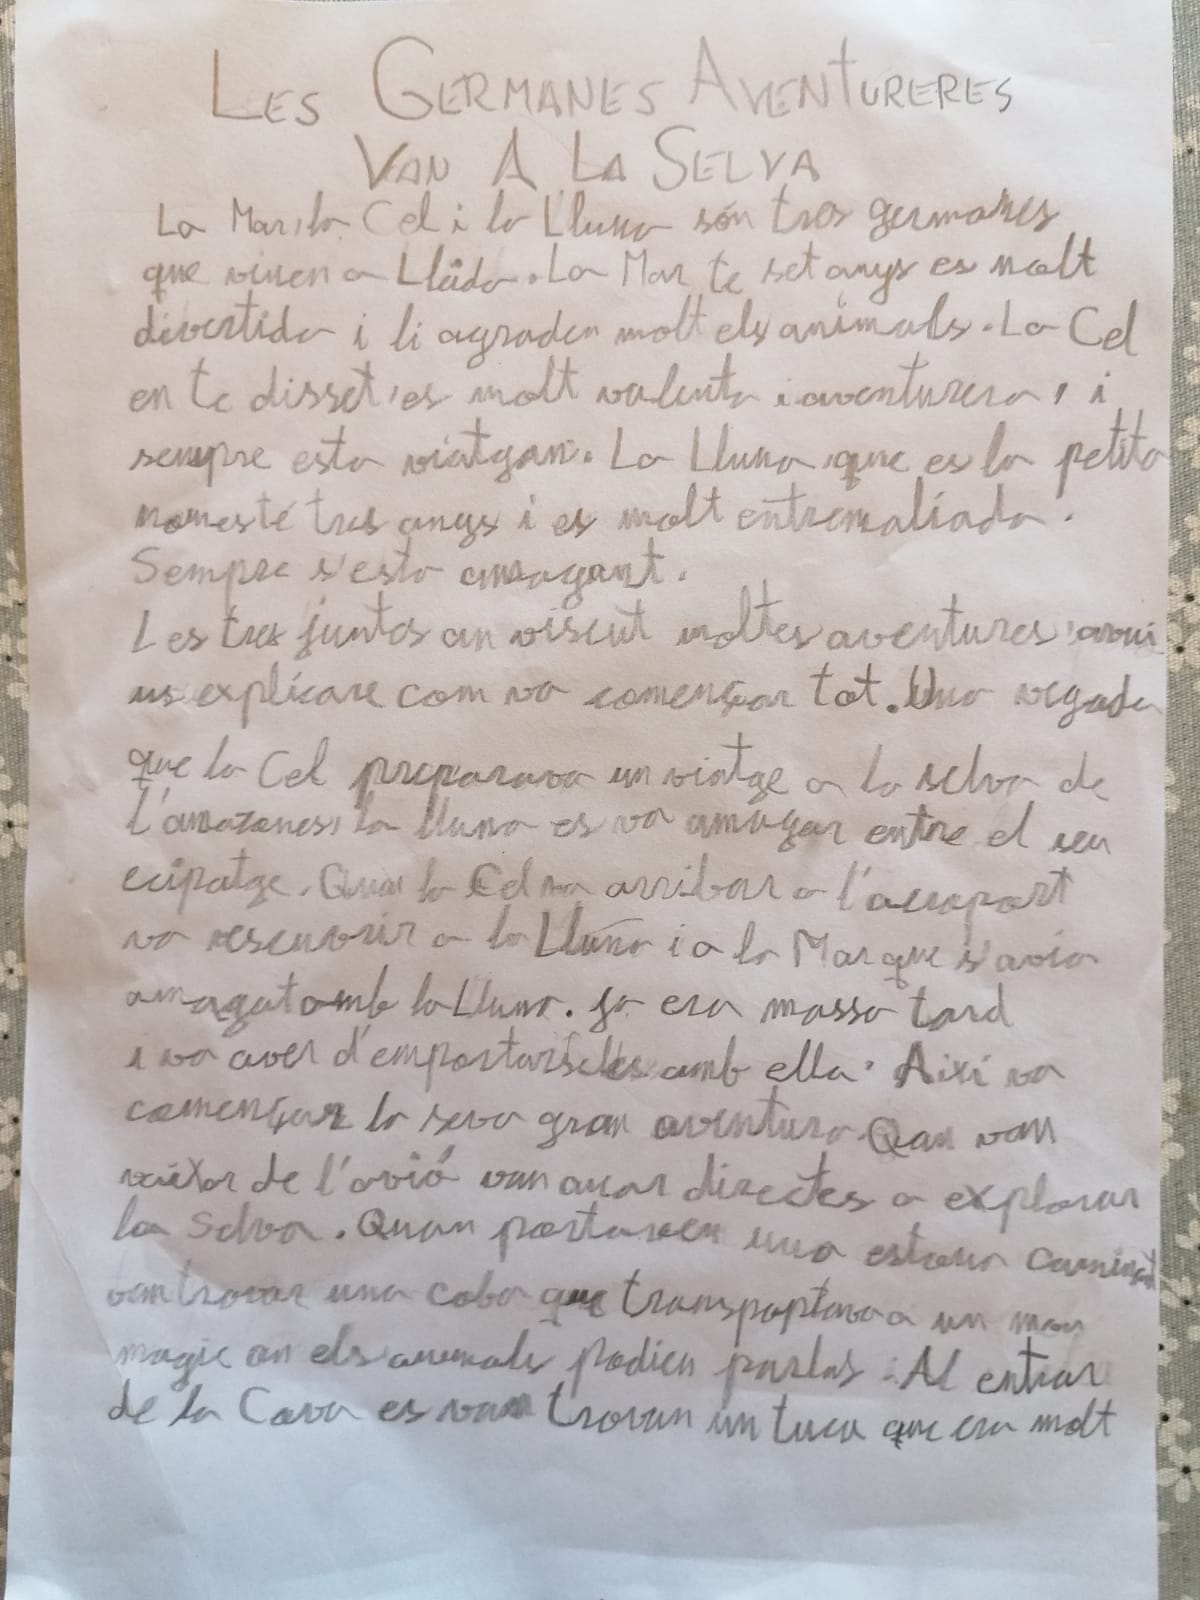 LES GERMANES AVENTURERES
VAN A LA SELVA
La Mar, la Cel i la Lluna són tres germanes
que viuen a Lladó. La Mar te set anys es molt
divertida i li agraden molt els animals. La Cel
en te disset, es molt valenta i aventurera, i
sempre esta viatgan. La Lluna, que es la petita
nomes té tres anys i es molt entremaliada.
Sempre s'esta amagant.
Les tres juntes an viscut moltes aventures, avui
us explicare com va començar tot. Una vegada
que la Cel preparava un viatge a la selva de
l'amazones, la lluna es va amagar entre el seu
ecipatge. Quan la Cel va arribar a l'aeroport
va rescuvrir a la Lluna i a la Mar que s'avia
amagat amb la Lluna. Ja era massa tard
i va aver d'emportarseles amb ella. Aixi va
començar la seva gran aventura. Qan van
vaixar de l'avió van anar directes a explorar
la Selva. Quan portaven una estona caminant
van trovar una coba que transpoptava a un mon
magic on els animals podien parlar. Al entrar
de la Cova es van trovan un tuca que era molt